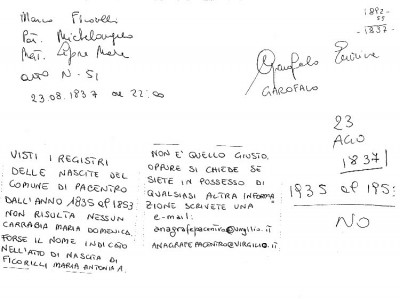 Marco Ficorelli
Pat. Michelangelo
Mat.
atto N-51
23.08.1837 ore 22:00
1892-
55
-1837-
Garofalo
GAROFALO
23
AGO
1837
1935 al 1953
NO
VISTI I REGISTRI
DELLE NASCITE DEL
COMUNE DI PACENTRO
DALL'ANNO 1835 al 1853
NON RISULTA NESSUN
CARRABIA MARIA DOMENICA,
FORSE IL NOME INDICATO
NELL'ATTO DI NASCITA DI
FICORILLI MARIA ANTONIA A.
NON E' QUELLO GIUSTO,
OPPURE SI CHIEDE SE
SIETE IN POSSESSO DI
QUALSIASI ALTRA INFORMA
ZIONE SCRIVETE UNA
e-mail:
anagrafepacentro@virgilio.it
ANAGRAFEPACENTRO@VIRGILIO.IT